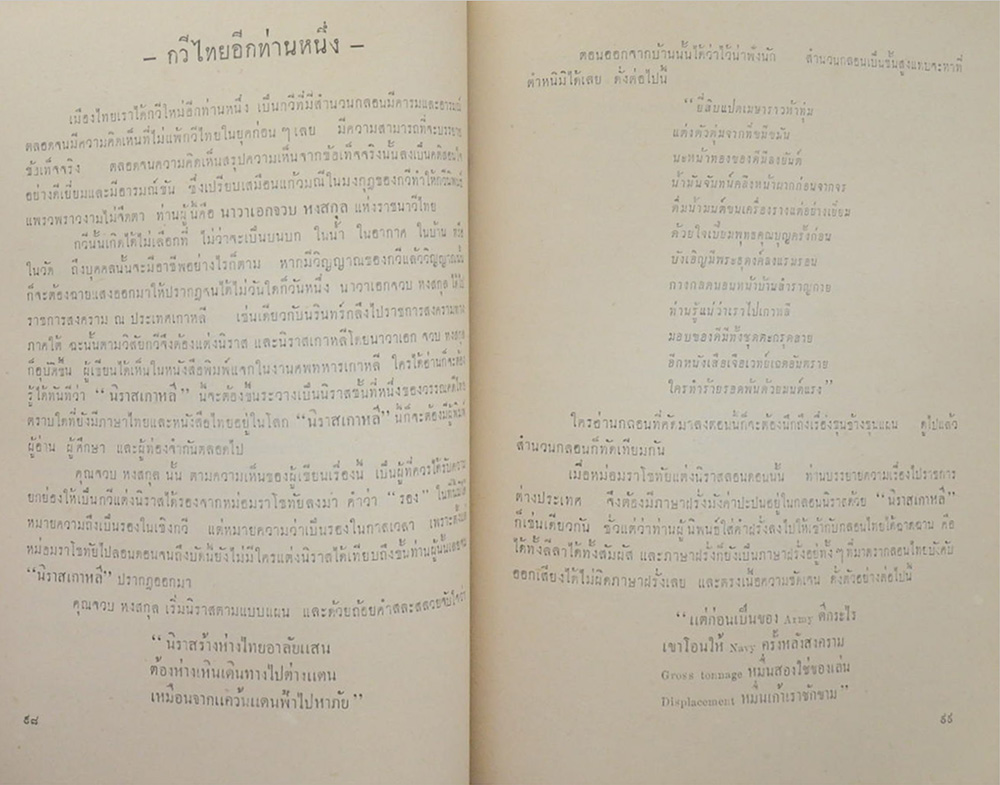 – กวีไทยอีกท่านหนึ่ง –
เมืองไทยเราได้กวีใหม่อีกท่านหนึ่ง เป็นกวีที่มีสำนวนกลอนมีคารมและอารมณ์
ตลอดจนมีความคิดเห็นที่ไม่แพ้กวีไทยในยุคก่อน ๆ เลย มีความสามารถที่จะบรรยาย
ข้อเท็จจริง ตลอดจนความคิดเห็นสรุปความเห็นจากข้อเท็จจริงนั้นลงเป็นคติสอนใจ
อย่างดีเยี่ยมและมีอารมณ์ขัน ซึ่งเปรียบเสมือนแก้วมณีในมงกุฎของกวีทำให้กวีนิพนธ์
แพรวพราวงามไม่จืดตา ท่านผู้นี้คือ นาวาเอกจวบ หงสกุล แห่งราชนาวีไทย
กวีนั้นเกิดได้ไม่เลือกที่ ไม่ว่าจะเป็นบนบก ในน้ำ ในอากาศ ในบ้าน หรือ
ในวัด ถึงบุคคลนั้นจะมีอาชีพอย่างไรก็ตาม หากมีวิญญาณของกวีแล้ววิญญาณนั้น
ก็จะต้องฉายแสงออกมาให้ปรากฏจนได้ไม่วันใดก็วันหนึ่ง นาวาเอกจวบ หงสกุล ได้ไป
ราชการสงคราม ณ ประเทศเกาหลี เช่นเดียวกับนรินทร์กลึงไปราชการสงครามทาง
ภาคใต้ ฉะนั้นตามวิสัยกวีจึงต้องแต่งนิราส และนิราสเกาหลีโดยนาวาเอก จวบ หงสกุล
ก็อุบัติขึ้น ผู้เขียนได้เห็นในหนังสือพิมพ์แจกในงานศพทหารเกาหลี ใครได้อ่านก็จะต้อง
รู้ได้ทันทีว่า “นิราสเกาหลี” นี้จะต้องขึ้นระวางเป็นนิราสชั้นที่หนึ่งของวรรณคดีไทย
ตราบใดที่ยังมีภาษาไทยและหนังสือไทยอยู่ในโลก “นิราสเกาหลี” นี้ก็จะต้องมีผู้พิมพ์
ผู้อ่าน ผู้ศึกษา และผู้ท่องจำกันตลอดไป
คุณจวบ หงสกุล นั้น ตามความเห็นของผู้เขียนเรื่องนี้ เป็นผู้ที่ควรได้รับความ
ยกย่องให้เป็นกวีแต่งนิราสได้รองจากหม่อมราโชทัยลงมา คำว่า “รอง” ในที่นี้มิได้
หมายความถึงเป็นรองในเชิงกวี แต่หมายความว่าเป็นรองในกาลเวลา เพราะตั้งแต่
หม่อมราโชทัยไปลอนดอนจนถึงบัดนี้ยังไม่มีใครแต่งนิราสได้เทียบถึงชั้นท่านผู้นั้นเลยจน
“นิราสเกาหลี” ปรากฏออกมา
คุณจวบ หงสกุล เริ่มนิราสตามแบบแผน และด้วยถ้อยคำสละสลวยจับใจว่า
“นิราสร้างห่างไทยอาลัยแสน
ต้องห่างเหินเดินทางไปต่างแดน
เหมือนจากแคว้นแดนฟ้าไปหาภัย”
๙๘
ตอนออกจากบ้านนั้นได้ว่าไว้น่าฟังนัก สำนวนกลอนเป็นชั้นสูงแทบจะหาที่
ตำหนิมิได้เลย ดังต่อไปนี้
“ยี่สิบแปดเมษาราวห้าทุ่ม
แต่งตัวตุ่มจากที่ขมีขมัน
นะหน้าทองของดีมีลงยันต์
น้ำมันจันทน์คลึงหน้าผากก่อนจากจร
ดื่มน้ำมนต์ขนเครื่องรางแต่อย่างเยี่ยม
ด้วยใจเปี่ยมพุทธคุณบุญครั้งก่อน
บังเอิญมีพระธุดงค์ลงแรมรอน
กางกลดนอนหน้าบ้านสำราญกาย
ท่านรู้แน่ว่าเราไปเกาหลี
มอบของดีมีทั้งชุดตะกรุดลาย
อีกหนังสือเจือเวทย์เจตอันตราย
ใครทำร้ายรอดพ้นด้วยมนต์แรง”
ใครอ่านกลอนที่คัดมาลงตอนนี้ก็จะต้องนึกถึงเรื่องขุนช้างขุนแผน ดูไปแล้ว
สำนวนกลอนก็ทัดเทียมกัน
เมื่อหม่อมราโชทัยแต่งนิราสลอนดอนนั้น ท่านบรรยายความเรื่องไปราชการ
ต่างประเทศ จึงต้องมีภาษาฝรั่งมังค่าปะปนอยู่ในกลอนนิราสด้วย “นิราสเกาหลี”
ก็เช่นเดียวกัน ชั่วแต่ว่าท่านผู้นิพนธ์ใส่คำฝรั่งลงไปให้เข้ากับกลอนไทยได้ฉาดฉาน คือ
ได้ทั้งลีลาได้ทั้งสัมผัส และภาษาฝรั่งก็ยังเป็นภาษาฝรั่งอยู่ทั้ง ๆ ที่มาตรากลอนไทยบังคับ
ออกเสียงได้ไม่ผิดภาษาฝรั่งเลย และตรงเนื้อความชัดเจน ดังตัวอย่างต่อไปนี้
“แต่ก่อนเป็นของ Army ดีกระไร
เขาโอนให้ Navy ครั้งหลังสงคราม
Gross tonnage หมื่นสองใช่ของเล่น
Displacement หมื่นเก้าเราชักขาม”
๙๙